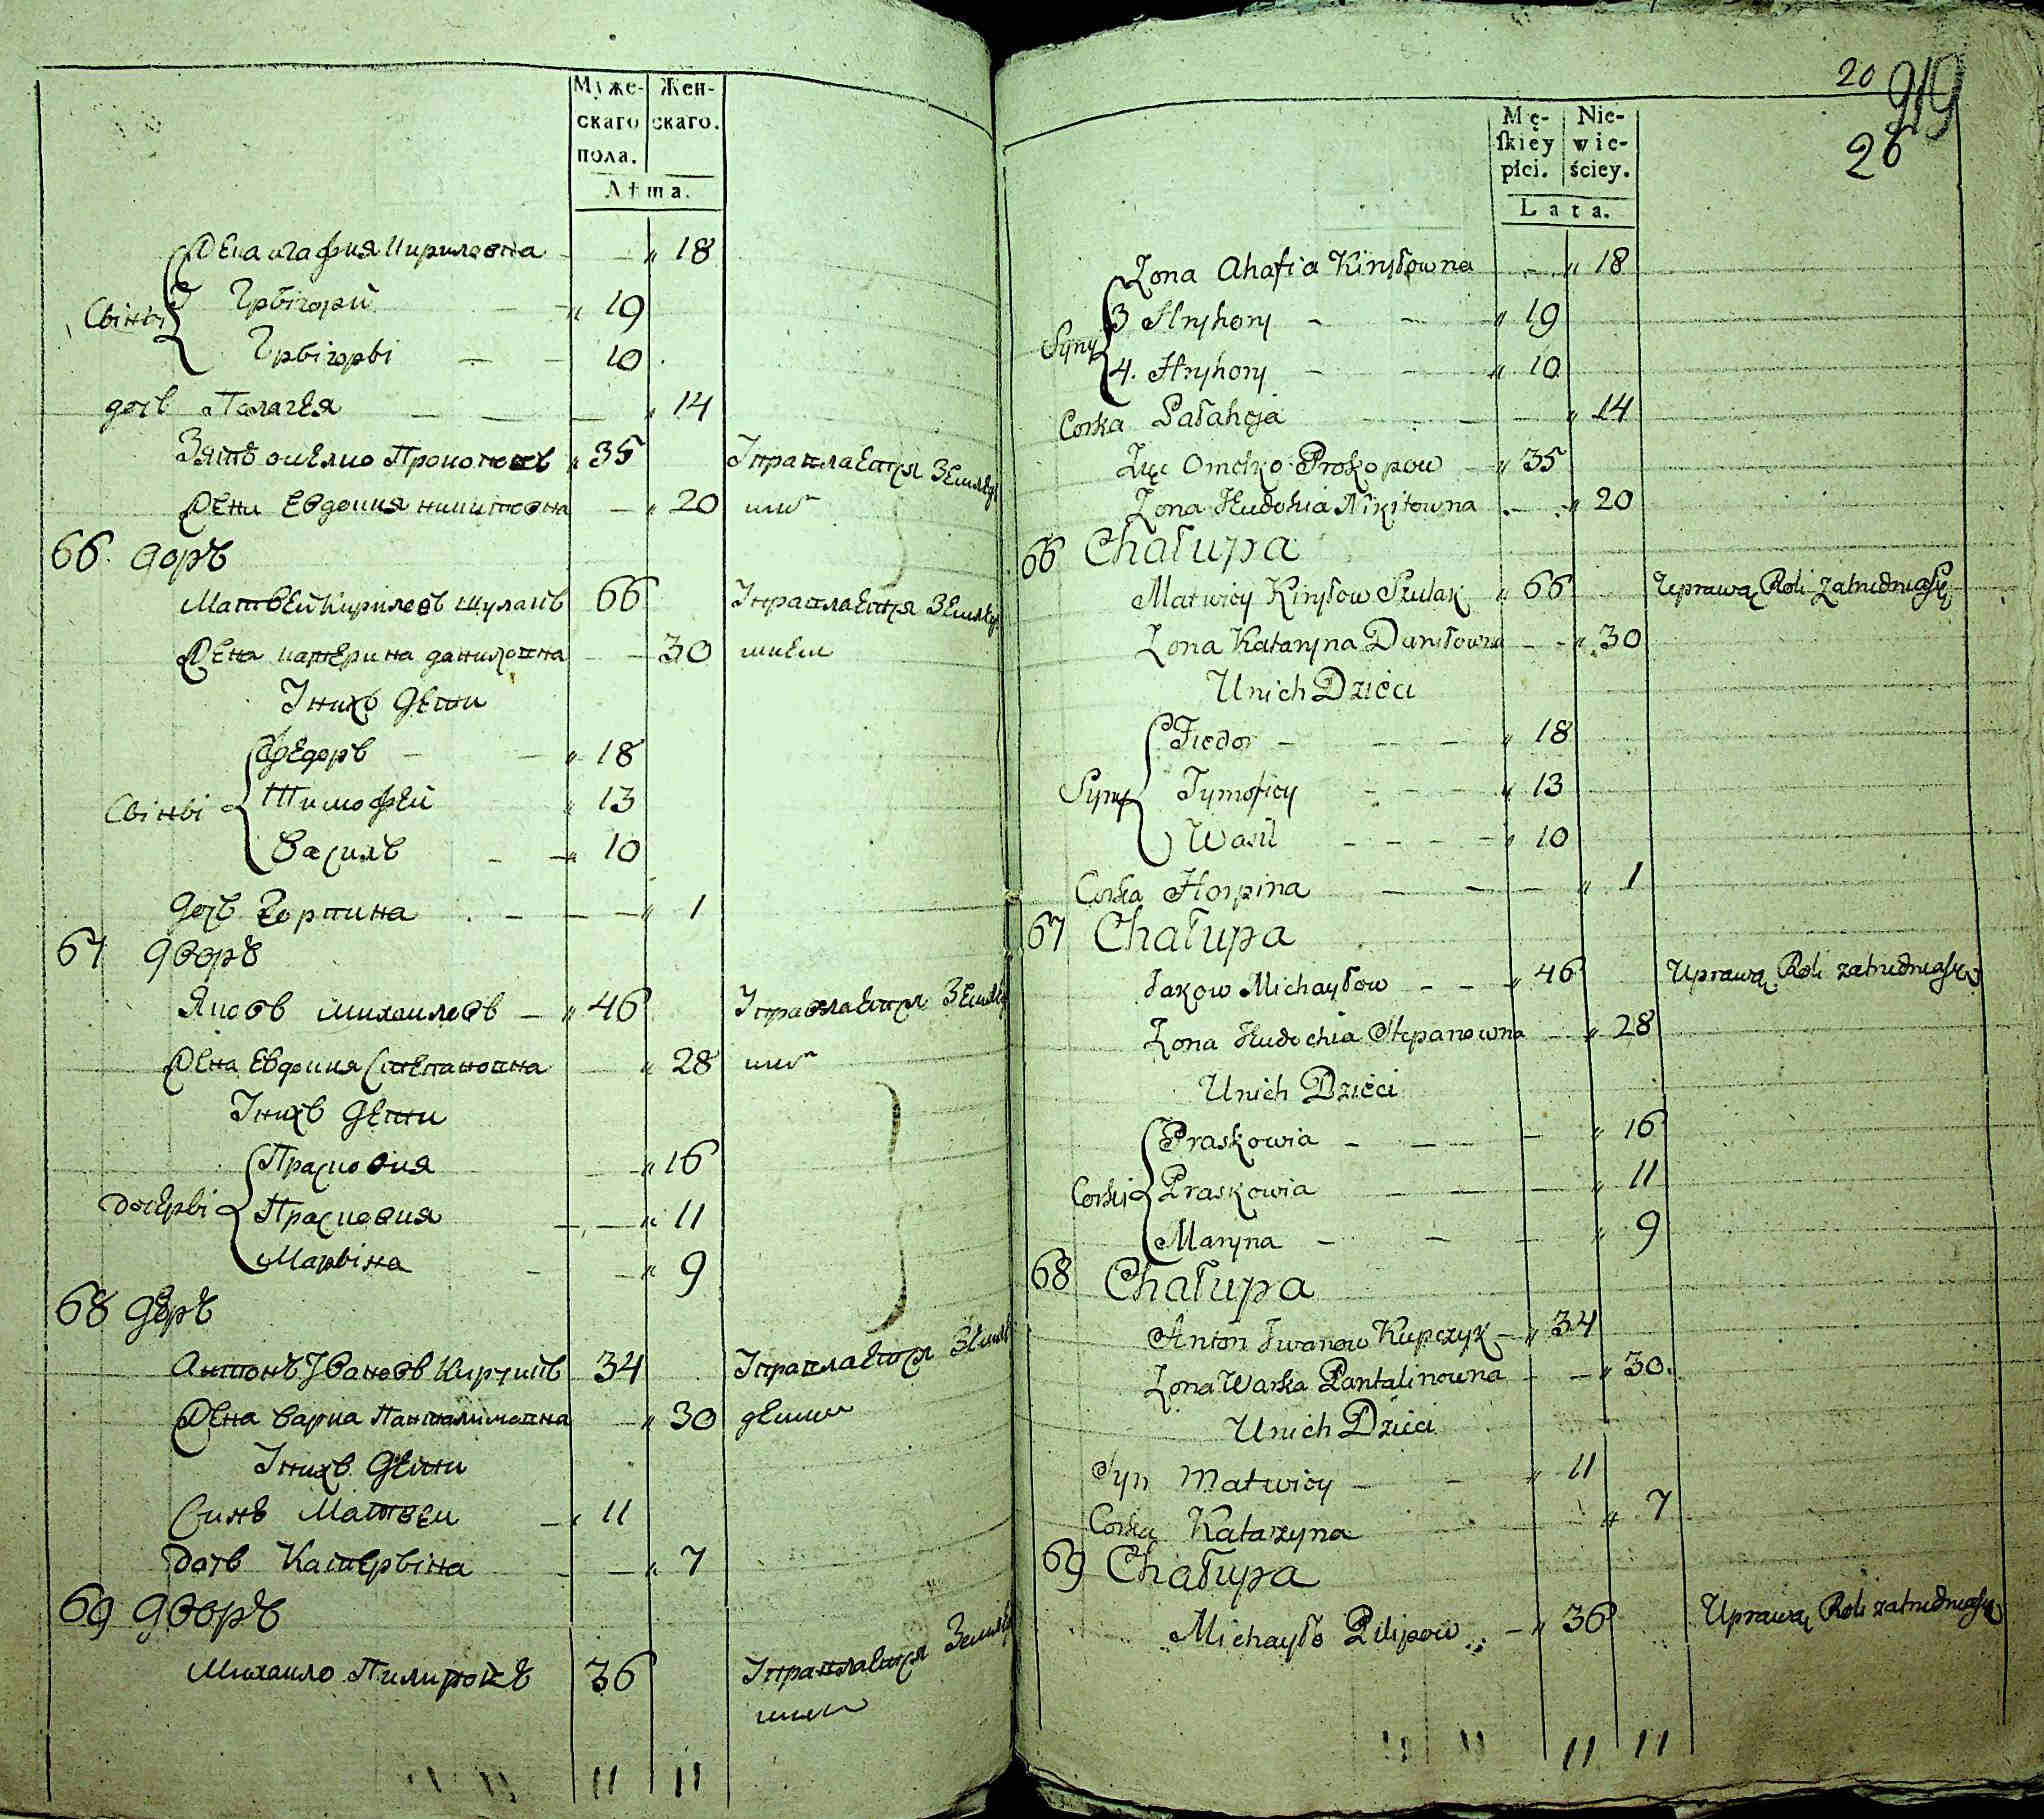 Муже-
скаго
пола.
Жен-
скаго.
Лѣта.
Жена Агафия Кириловна " 18
Свіны
3 Грыгорий " 19
Грыгоры 10
дочь Палагея " 14
Зять Омелко Прокоповъ " 35 Управляется Землед
Жена Евдокия Никитовна " 20
66. дворъ
Матвей Кириловъ Шулакъ 66 Управляется Землед
Жена Катерина Даниловна 30
У нихъ дети
Сыны
Федоръ " 18
Тимофей " 13
Василь " 10
дочь Горпина " 1
67 дворъ
Яковъ Михаиловъ " 46 Управляется Землед
Жена Евдокия Степановна " 28
У нихъ дети
дочеры
Прасковия " 16
Прасковия " 11
Марына " 9
68 дворъ
Антонъ Ивановъ 34 Управляется Землед
Жена Варка Панталимовна " 30
У нихъ дети
Синъ Матвеи " 11
дочь Катерына " 7
69 дворъ
Михаило Пилиповъ 36 Управляется Землед
11 11
20
919
26
Mę-
ſkiey
płci.
Nie-
wie-
ściey.
Lata.
Żona Ahafia Kiryłowna " 18
Syny
3 Hryhory " 19
4. Hryhory " 10
Corka Pałaheja " 14
Zięc Omelko Prokopow " 35
Żona Hudokia Nikitowna " 20
66 Chałupa
Matwiey Kiryłow Szulak " 66 Uprawą Roli zatrudnia się
Żona Kataryna Daniłowna " 30
U nich Dzieci
Syny
Fiedor " 18
Tymofiey " 13
Wasil " 10
Corka Horpina " 1
67 Chałupa
Jakow Michayłow " 46 Uprawą Roli zatrudnia się
Żona Hudochia Stepanowna " 28
U nich Dzieci
Corki
Praskowia " 16
Praskowia " 11
Maryna " 9
68 Chałupa
Anton Iwanow Kupczyk " 34
Żona Warka Pantalinowna " 30.
U nich Dzieci
Syn Matwiey " 11
Corka Katarzyna " 7
69 Chałupa
Michayło Pilipow " 36 Uprawą Roli zatrudnia się
11 11